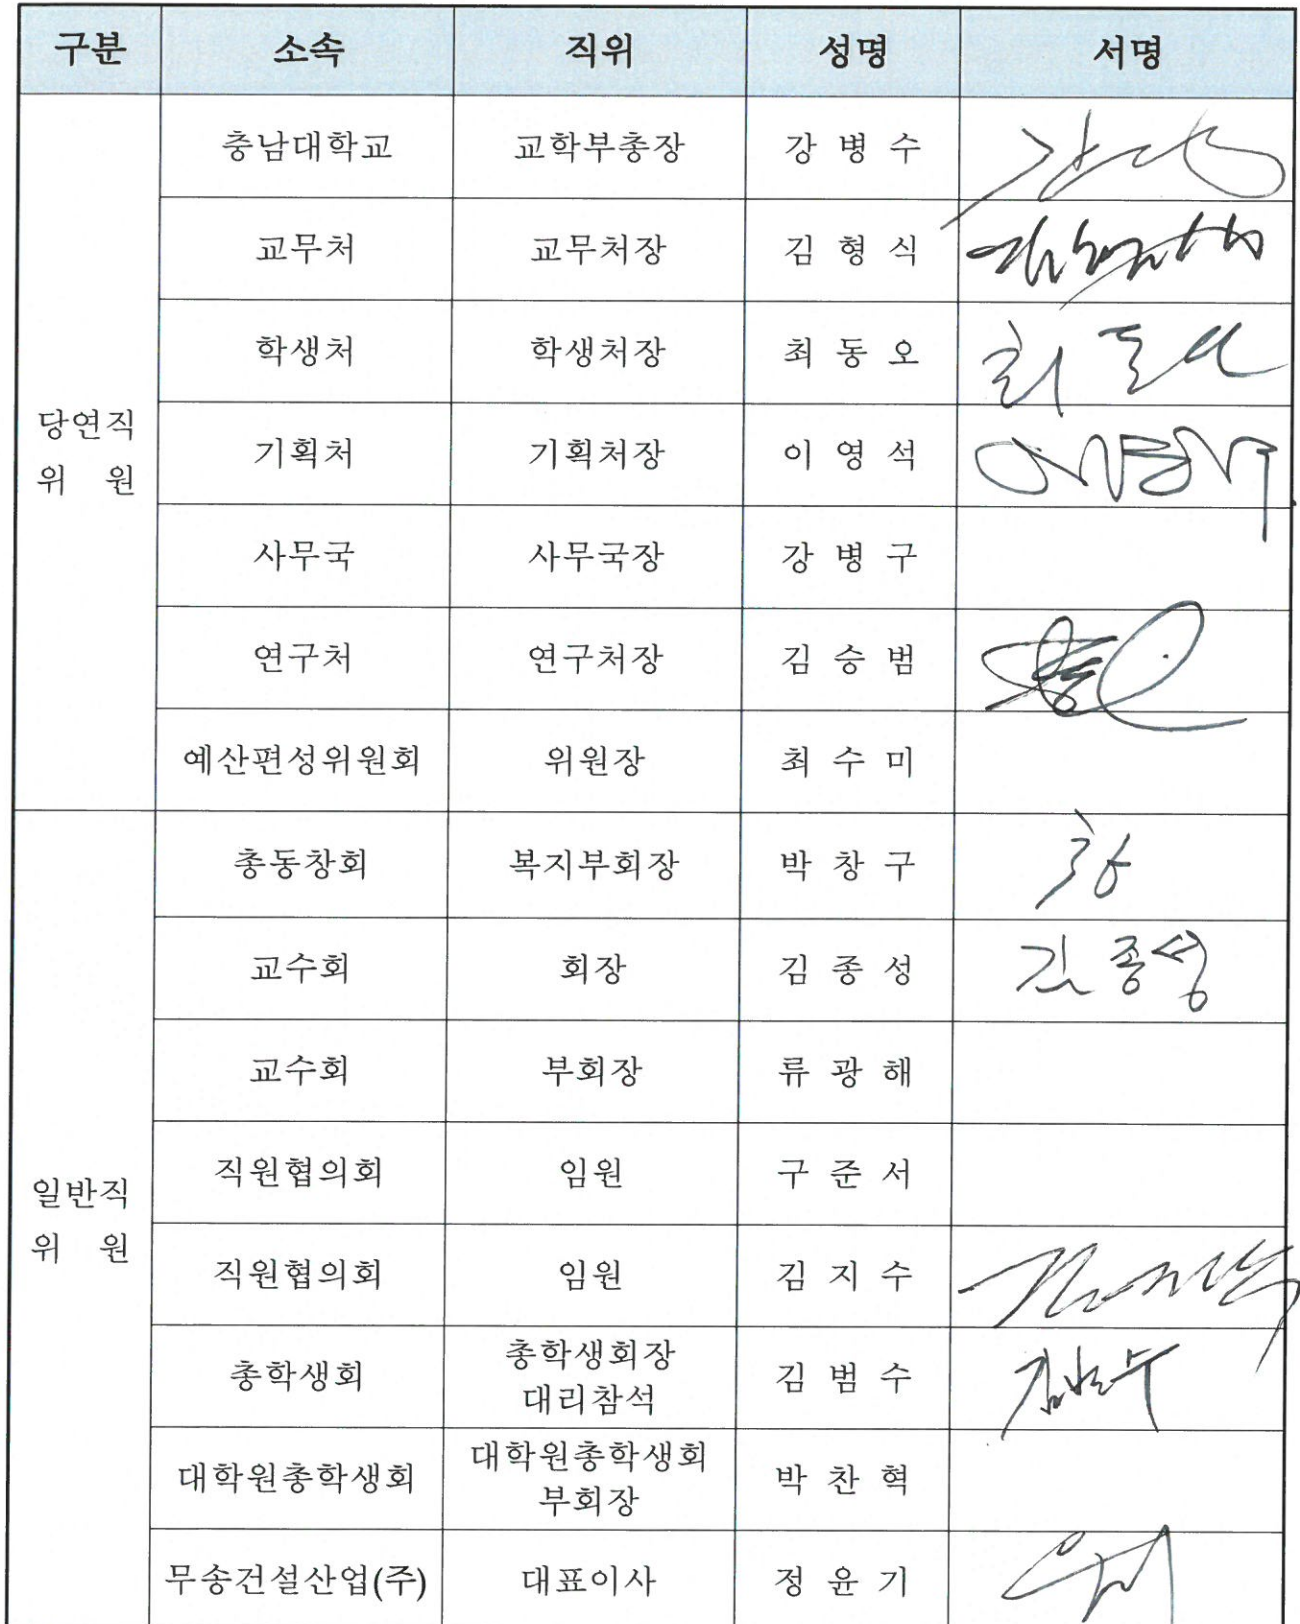 구분 소속 직위 성명 서명
충남대학교 교학부총장 강 병 수
교무처 교무처장 김 형 식
학생처 학생처장 최 동 오
당연직
위 원
기획처 기획처장 이 영 석
사무국 사무국장 강 병 구
연구처 연구처장 김 승 범
예산편성위원회 위원장 최 수 미
총동창회 복지부회장 박 창 구
교수회 회장 김 종 성 김종성
교수회 부회장 류 광 해
직원협의회 임원 구 준 서
일반직
위 원
직원협의회 임원 김 지 수
총학생회 총학생회장
대리참석 김 범 수 김범수
대학원총학생회 대학원총학생회
부회장 박 찬 혁
무송건설산업(주) 대표이사 정 윤 기